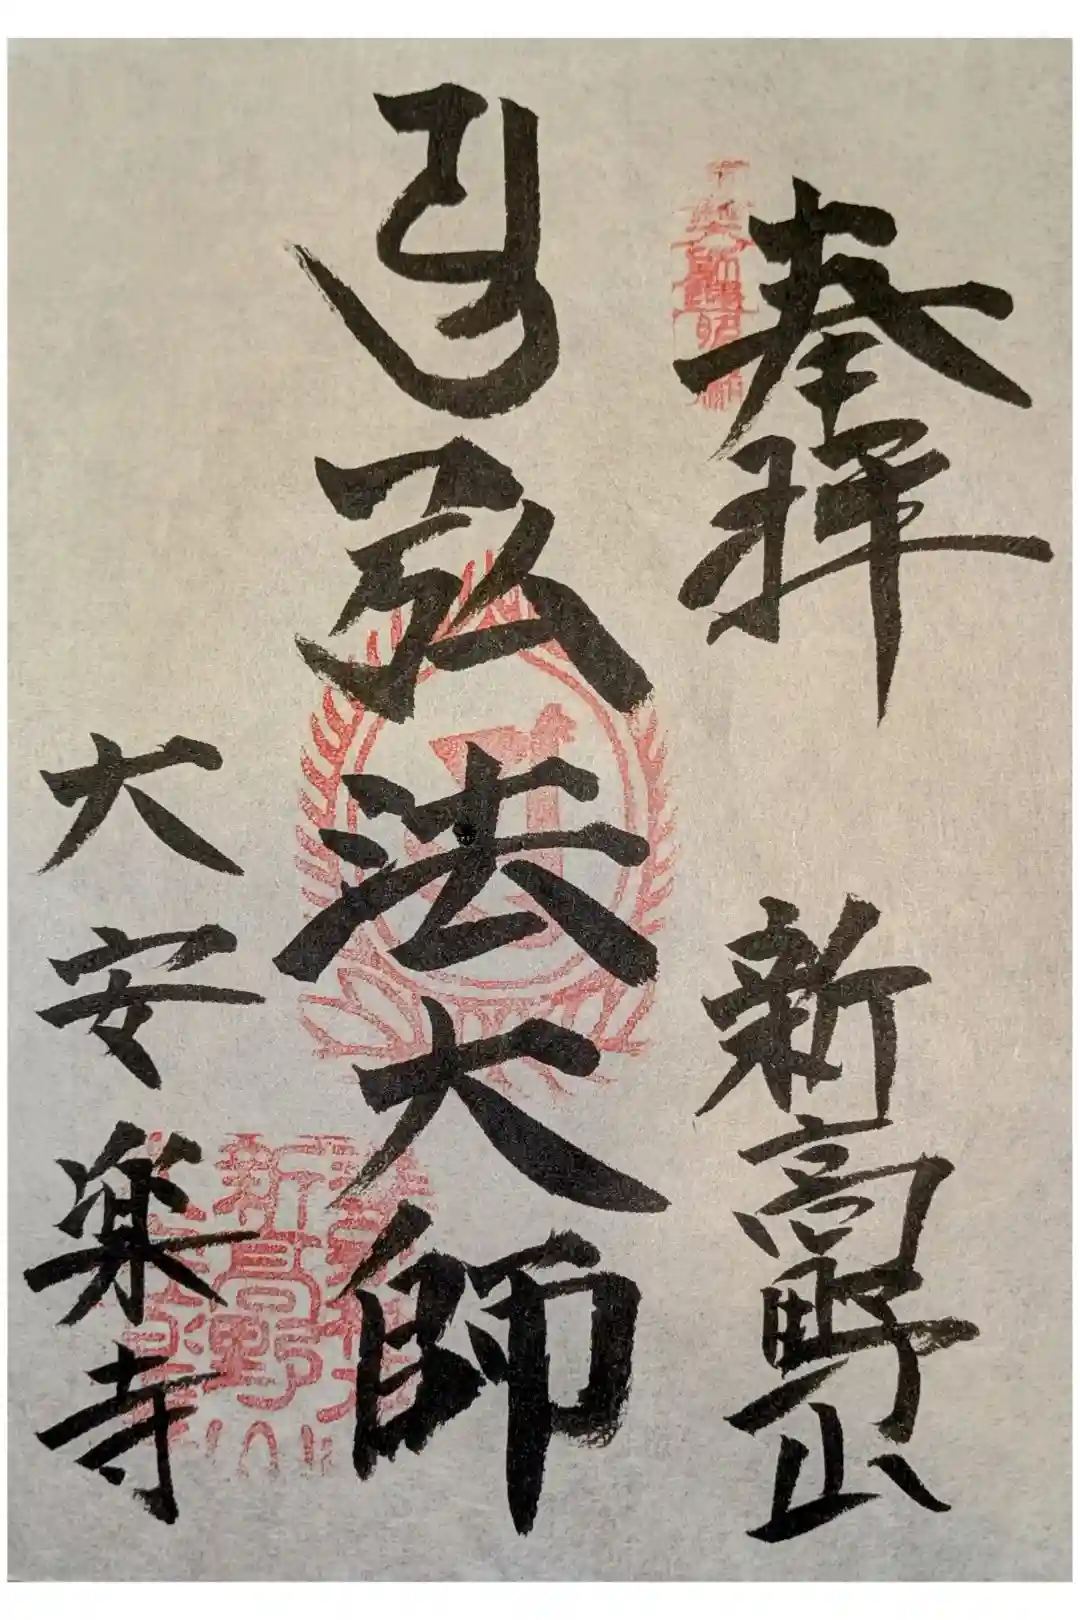 奉拝
新高野山
弘法大師
大安楽寺
新高野